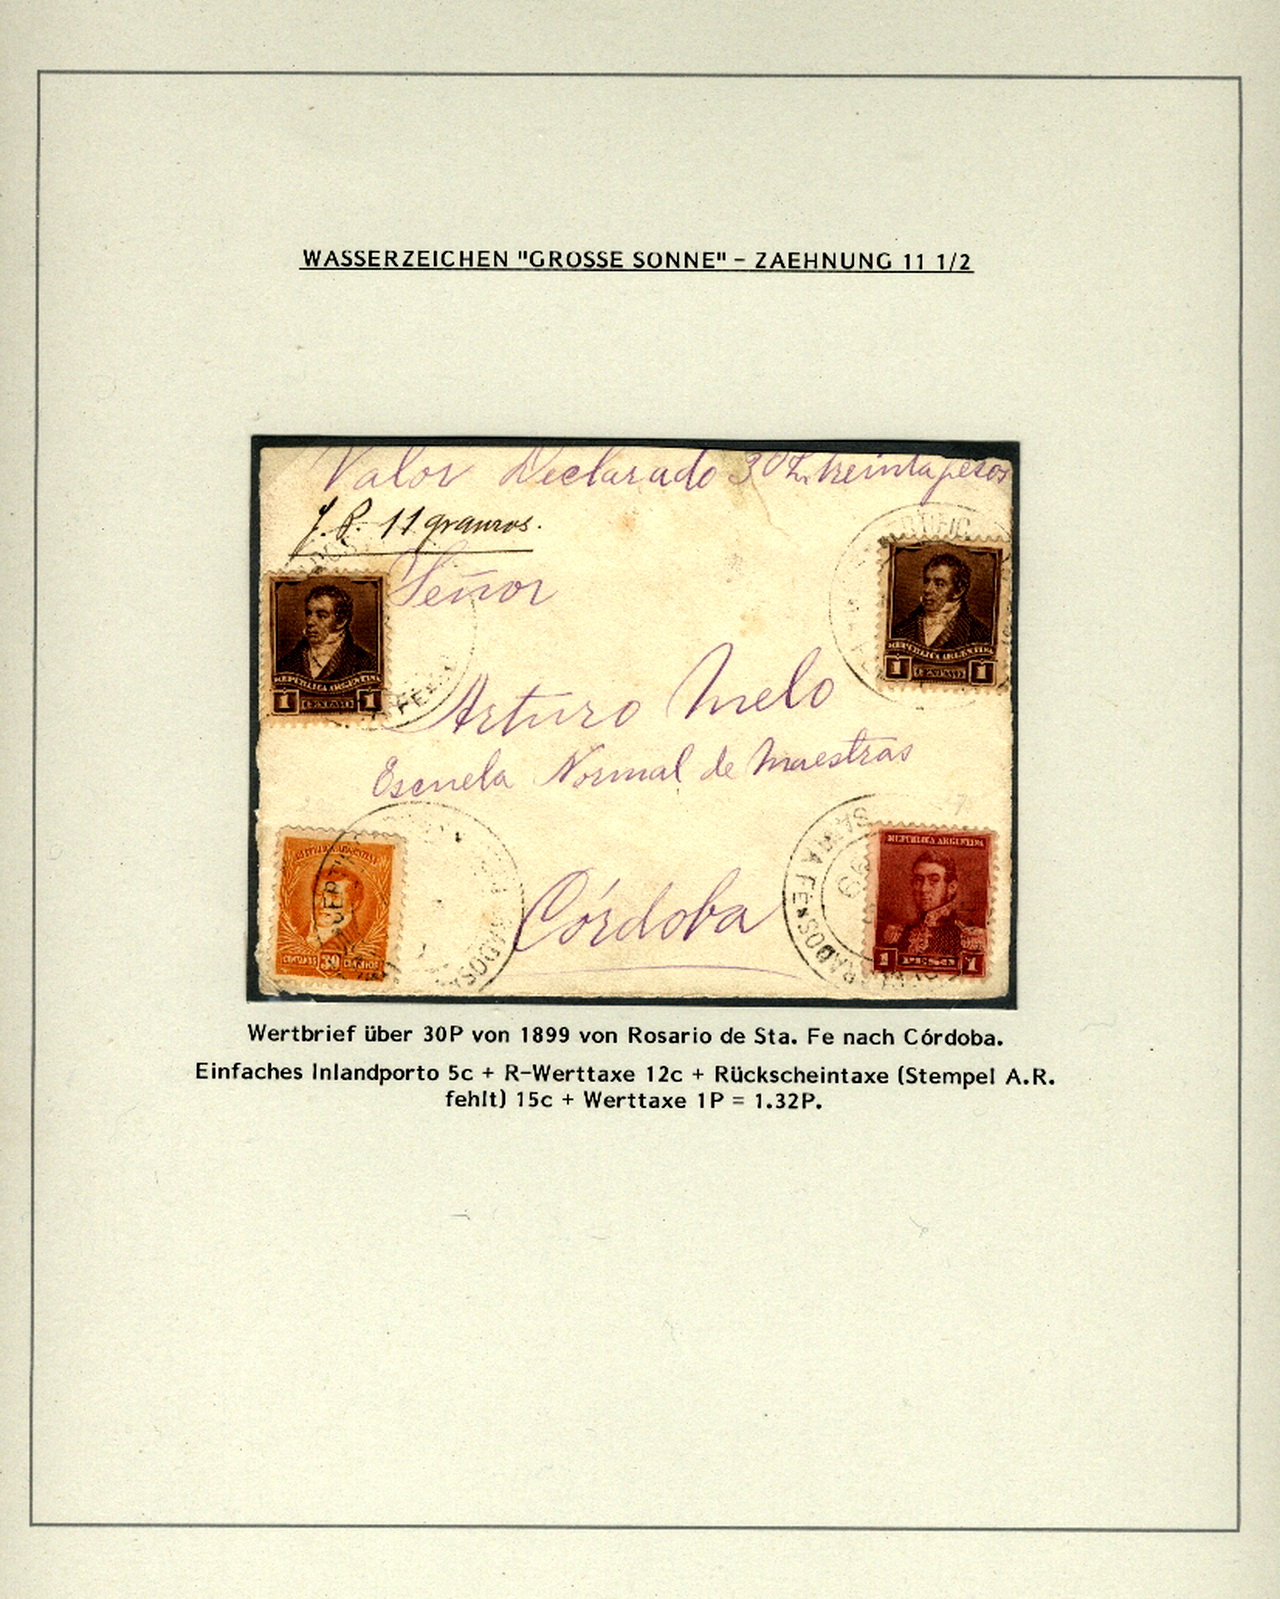 WASSERZEICHEN "GROSSE SONNE" - ZAEHNUNG 11 1/2
Valor Declarado 30 treinta pesos
11 gramos.
Señor
REPUBLICA ARGENTINA
1 CENTAVO 1
REPUBLICA ARGENTINA
1 CENTAVO 1
Arturo Melo
Escuela Normal de Maestras
Córdoba
REPUBLICA ARGENTINA
CENTAVOS 30 CENTAVOS
SANTA FE
99
REPUBLICA ARGENTINA
1 PESO 1
Wertbrief über 30P von 1899 von Rosario de Sta. Fe nach Córdoba.
Einfaches Inlandporto 5c + R-Werttaxe 12c + Rückscheintaxe (Stempel A.R.
fehlt) 15c + Werttaxe 1P = 1.32P.